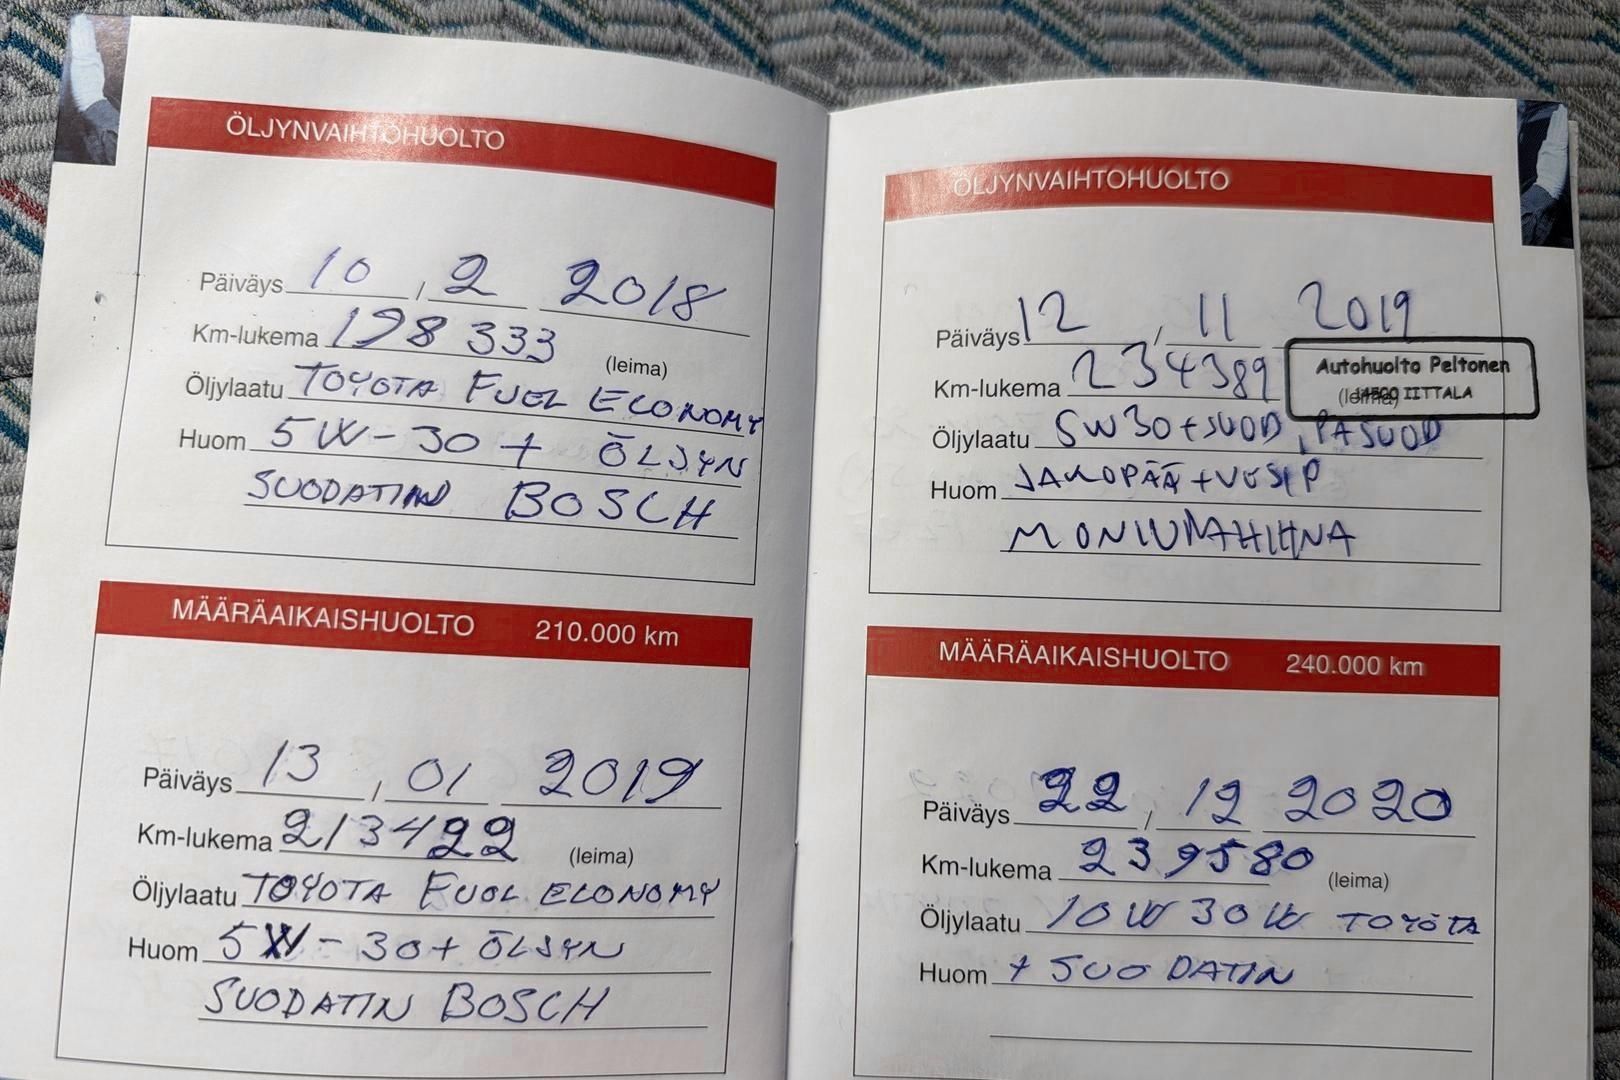 ÖLJYNVAIHTOHUOLTO
Päiväys 10 , 2 2018
Km-lukema 198 333 (leima)
Öljylaatu TOYOTA FUEL ECONOMY
Huom 5W-30 + ÖLJYN
SUODATIN BOSCH
MÄÄRÄAIKAISHUOLTO 210.000 km
Päiväys 13 , 01 2019
Km-lukema 213422 (leima)
Öljylaatu TOYOTA FUEL ECONOMY
Huom 5W-30+ ÖLJYN
SUODATIN BOSCH
ÖLJYNVAIHTOHUOLTO
Päiväys 12 / 11 2019
Km-lukema 234389
Autohuolto Peltonen
(leima) 14500 IITTALA
Öljylaatu 5W30+SUOD, PASUOD
Huom JAKOPÄÄ+VESIP
MONIURAHIHNA
MÄÄRÄAIKAISHUOLTO 240.000 km
Päiväys 22 , 12 2020
Km-lukema 239580 (leima)
Öljylaatu 10W 30W TOYOTA
Huom + SUODATIN